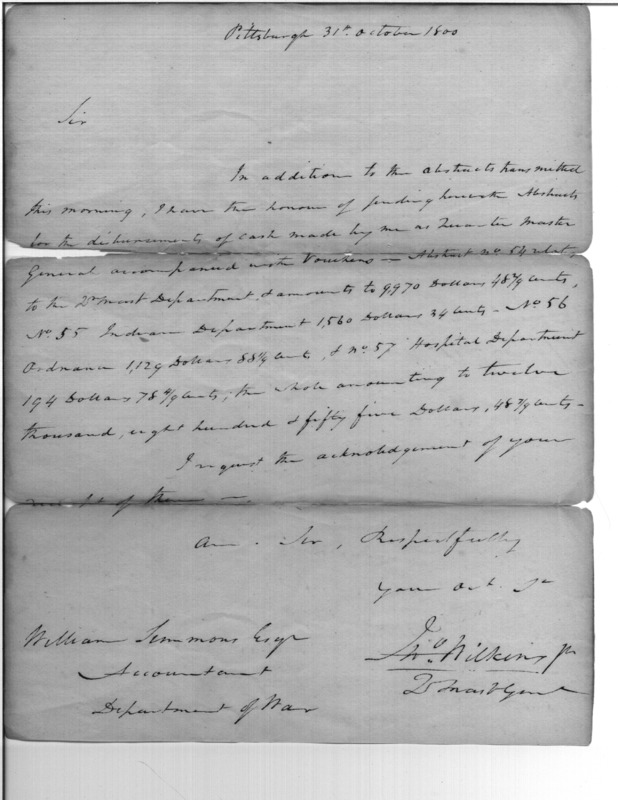 Pittsburgh 31st October 1800
Sir
In addition to the abstracts transmitted
this morning, I have the honour of sending herewith Abstracts
for the disbursements of cash made by me as Quarter Master
General accompanied with Vouchers — Abstract No. 54 relates
to the Qr Mast Department & amounts to 9970 Dollars 48 cents,
No 55 Indian Department 1,560 Dollars 34 cents - No 56
Ordnance 1,129 Dollars 88 cents, & No. 57 Hospital Department
194 Dollars 78 cents, the whole amounting to twelve
thousand, eight hundred & fifty five Dollars, 48 cents -
I request the acknoledgement of your
receipt of them —.
am . Sir, Respectfully
Your Obt. St
William Simmons Esqr
Accountant
Department of War
Jno. Wilkins Jr
Qr Mast Genl